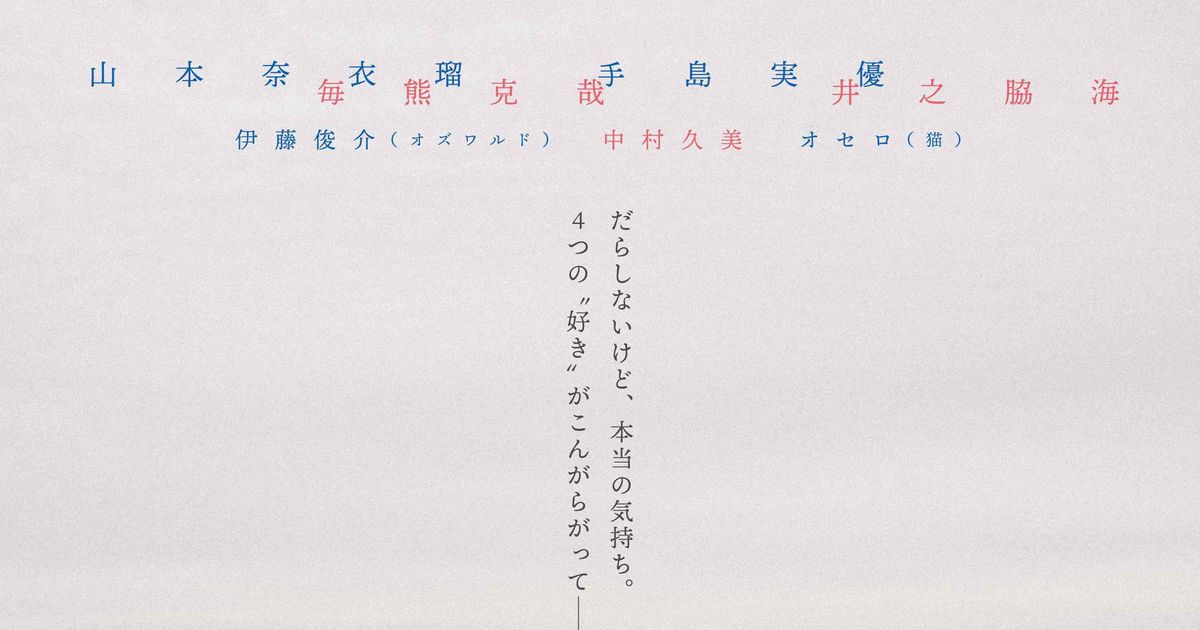 山本奈衣瑠
手島実優
毎熊克哉
井之脇海
伊藤俊介(オズワルド)
中村久美
オセロ(猫)
だらしないけど、本当の気持ち。
4つの〝好き〟がこんがらがって―